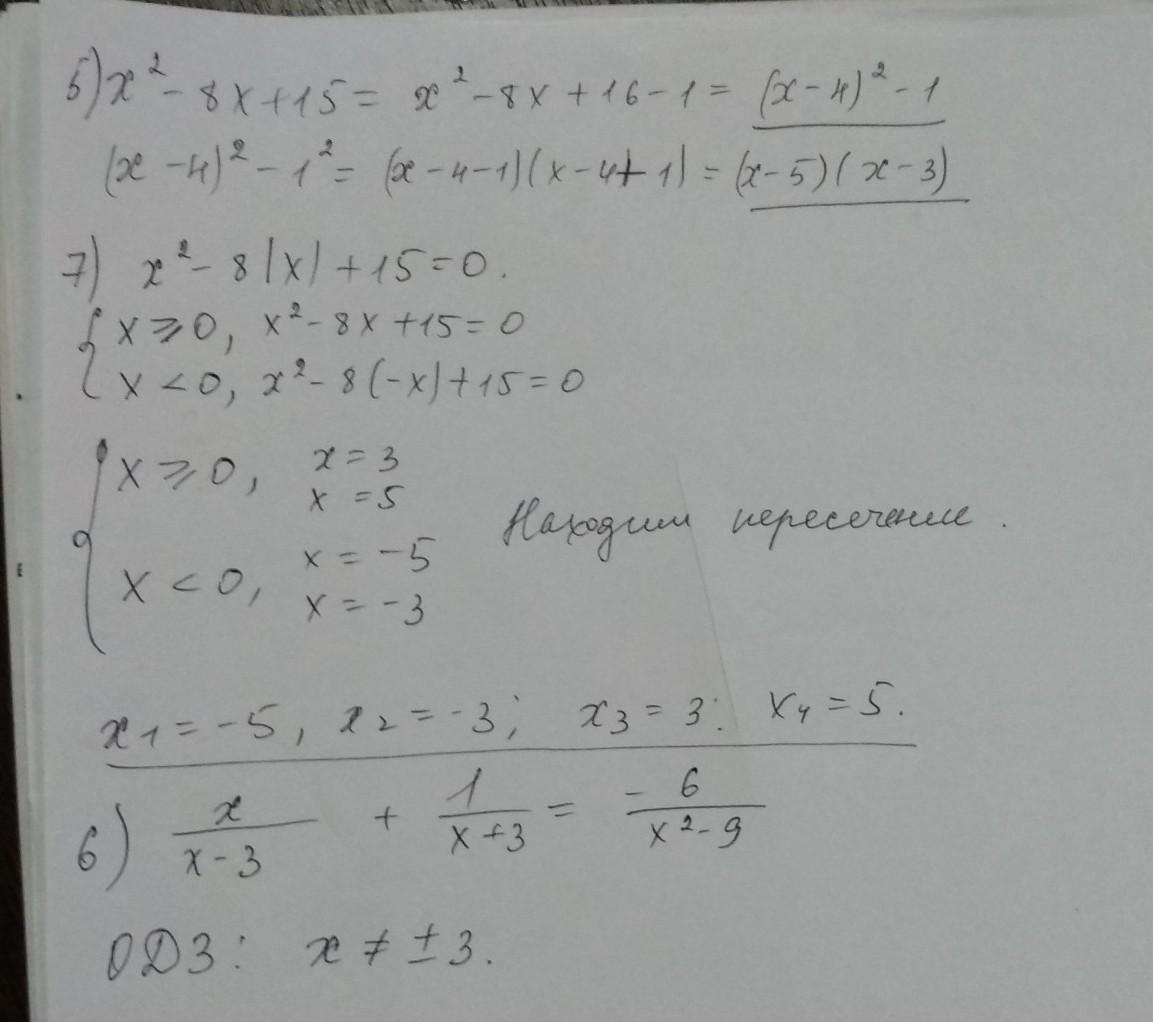 5) x² - 8x + 15 = x² - 8x + 16 - 1 = (x - 4)² - 1
(x - 4)² - 1² = (x - 4 - 1)(x - 4 + 1) = (x - 5)(x - 3)
7) x² - 8|x| + 15 = 0.
{ x ⩾ 0, x² - 8x + 15 = 0
x < 0, x² - 8(-x) + 15 = 0
{ x ⩾ 0, x = 3
x = 5
Находим пересечение.
x < 0, x = -5
x = -3
x₁ = -5, x₂ = -3; x₃ = 3; x₄ = 5.
6) x/(x - 3) + 1/(x + 3) = -6/(x² - 9)
ОДЗ: x ≠ ± 3.